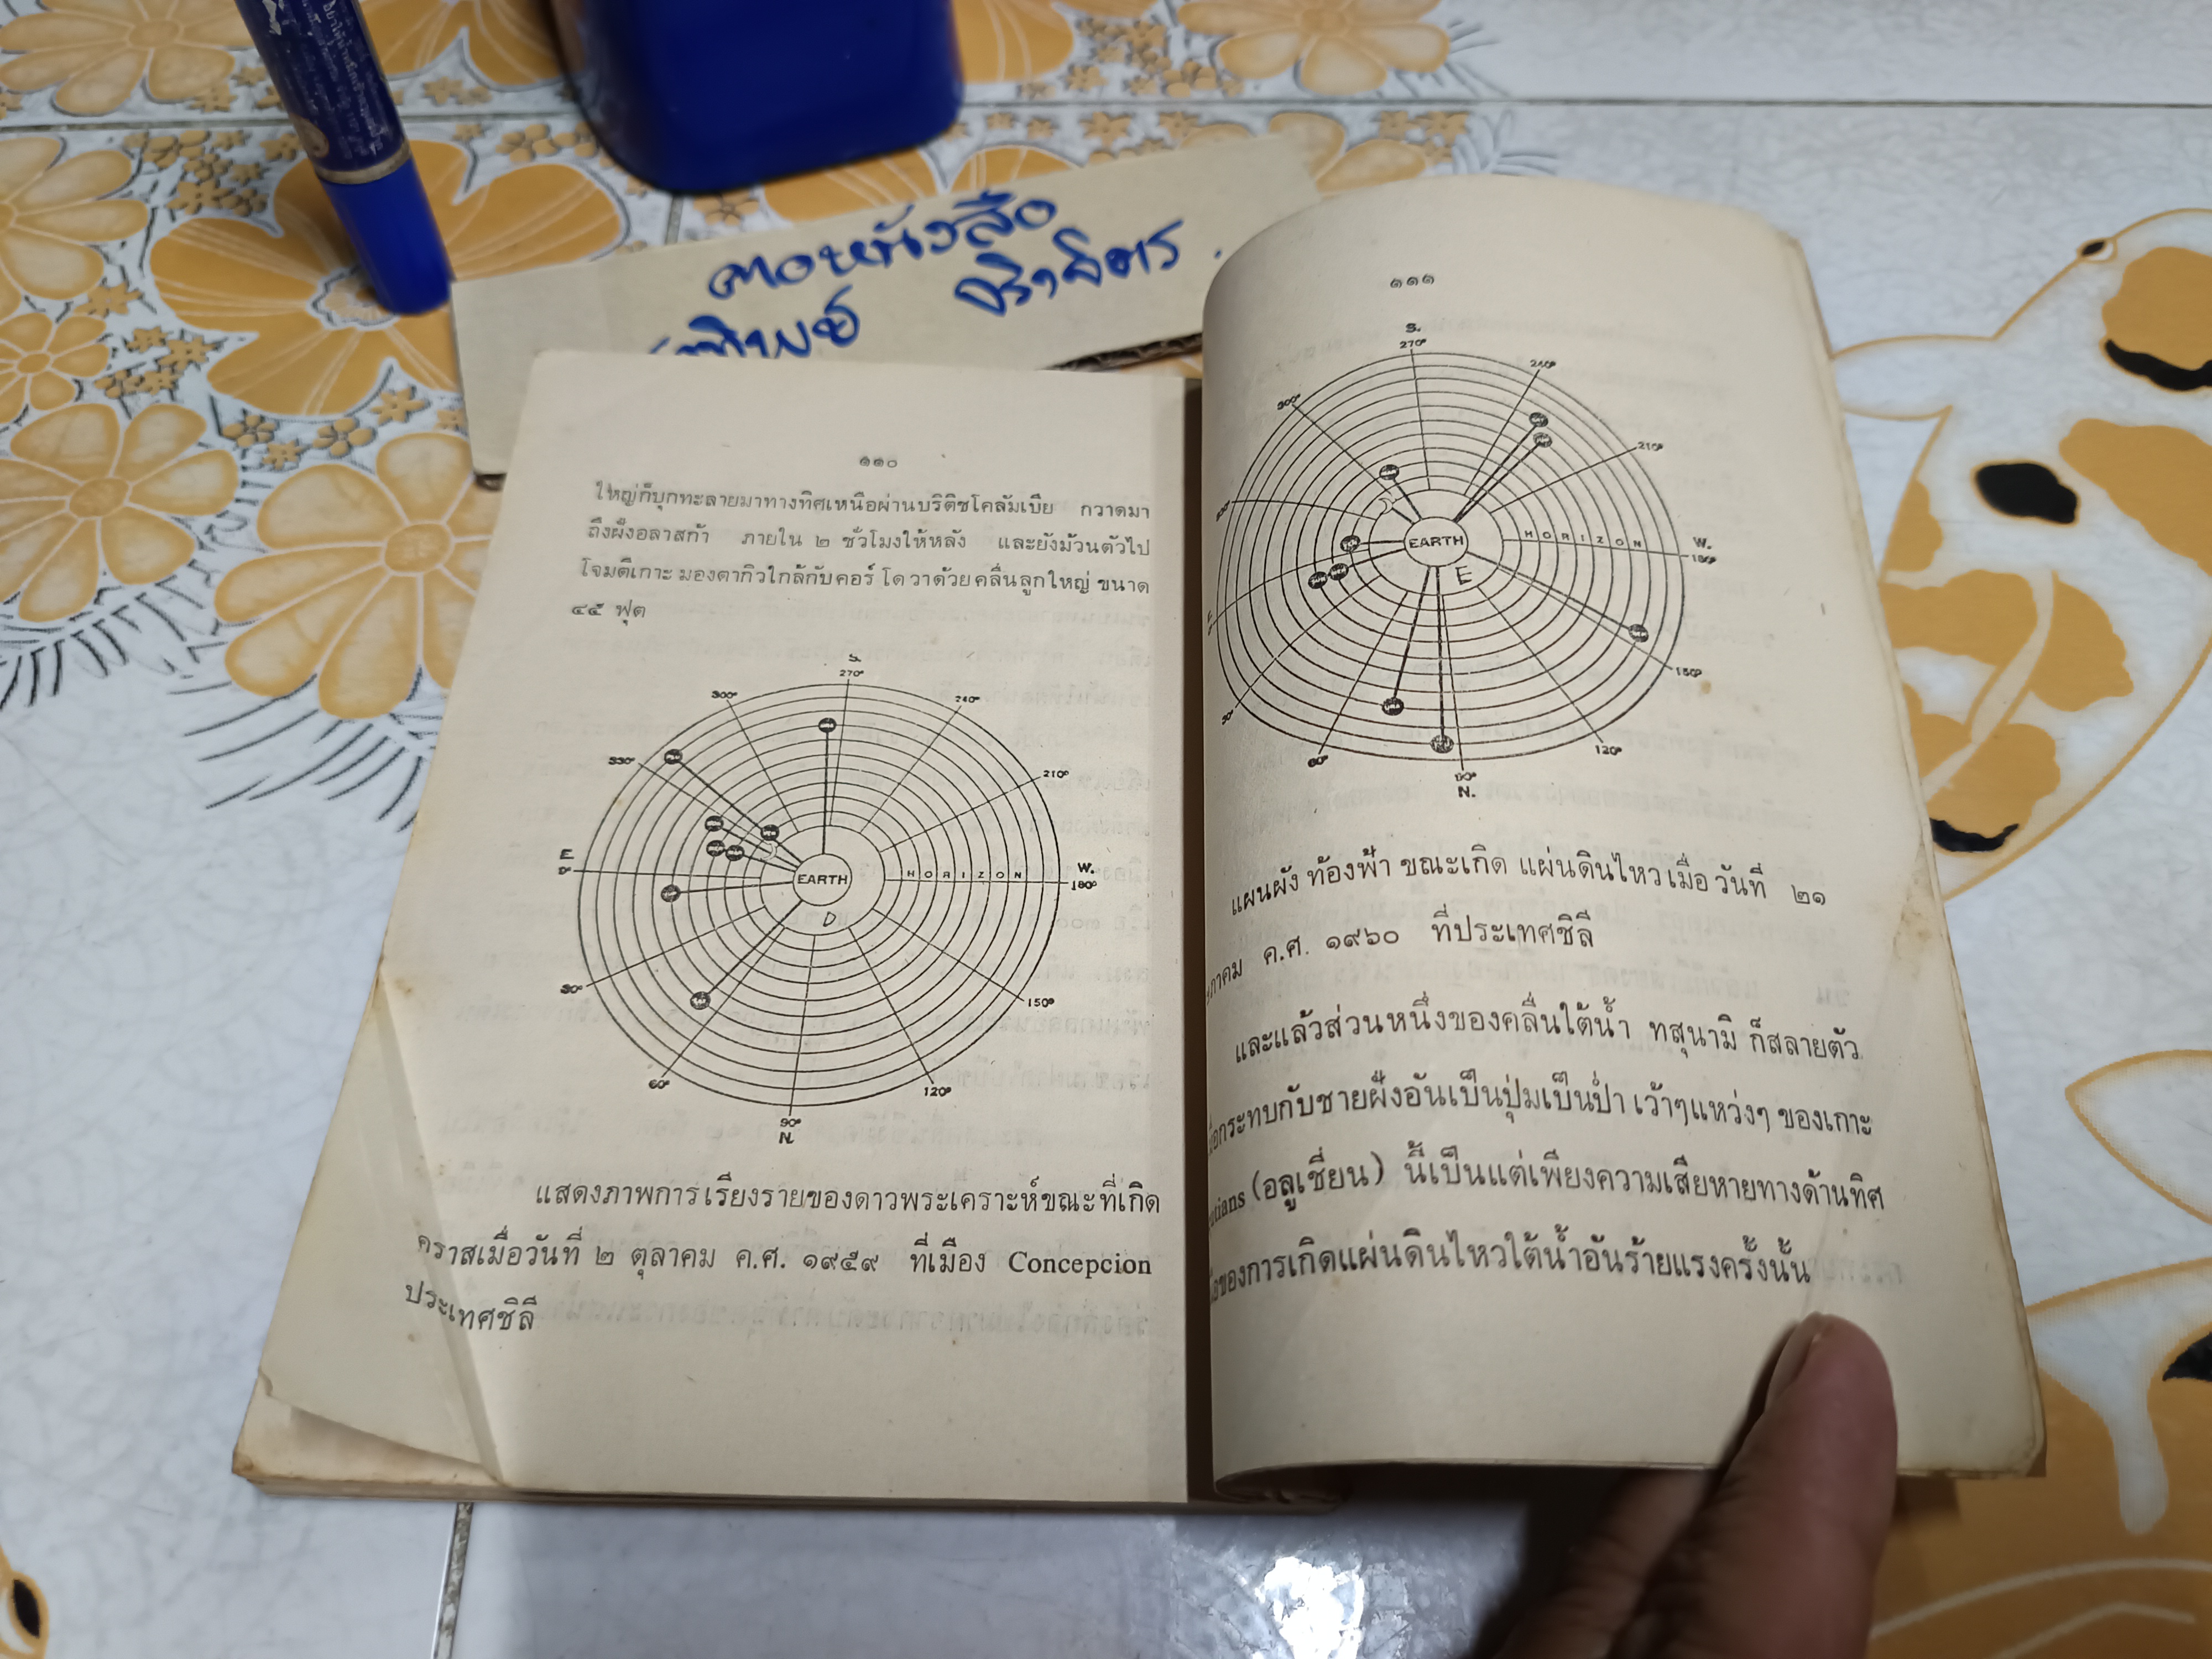 คอหนังสือ
๑๑๐
ใหญ่ก็บุกทะลายมาทางทิศเหนือผ่านบริติชโคลัมเบีย กวาดมา
ถึงฝั่งอลาสก้า ภายใน ๒ ชั่วโมงให้หลัง และยังม้วนตัวไป
โจมตีเกาะ มองตากิวใกล้กับคอร์ โด วาด้วย คลื่นลูกใหญ่ ขนาด
๔๕ ฟุต
S.
270°
300° 240°
330° 210°
E
0°
EARTH
HORIZON
W.
180°
D
30° 150°
60° 120°
90°
N.
แสดงภาพการ เรียงรายของดาวพระเคราะห์ขณะที่เกิด
คราสเมื่อวันที่ ๒ ตุลาคม ค.ศ. ๑๙๕๙ ที่เมือง Concepcion
ประเทศชิลี
๑๑๑
S.
270°
300° 240°
330° 210°
E
EARTH
HORIZON
W.
180°
E
30° 150°
60° 120°
90°
N.
แผนผัง ท้องฟ้า ขณะเกิด แผ่นดินไหว เมื่อ วันที่ ๒๑
ค.ศ. ๑๙๖๐ ที่ประเทศชิลี
และแล้วส่วนหนึ่งของคลื่นใต้น้ำ ทสุนามิ ก็สลายตัว
กระทบกับชายฝั่งอันเป็นปุ่มเป็นป่ำ เว้าๆแหว่งๆ ของเกาะ
(อลูเชี่ยน) นี้เป็นแต่เพียงความเสียหายทางด้านทิศ
ของการเกิดแผ่นดินไหวใต้น้ำอันร้ายแรงครั้งนั้น